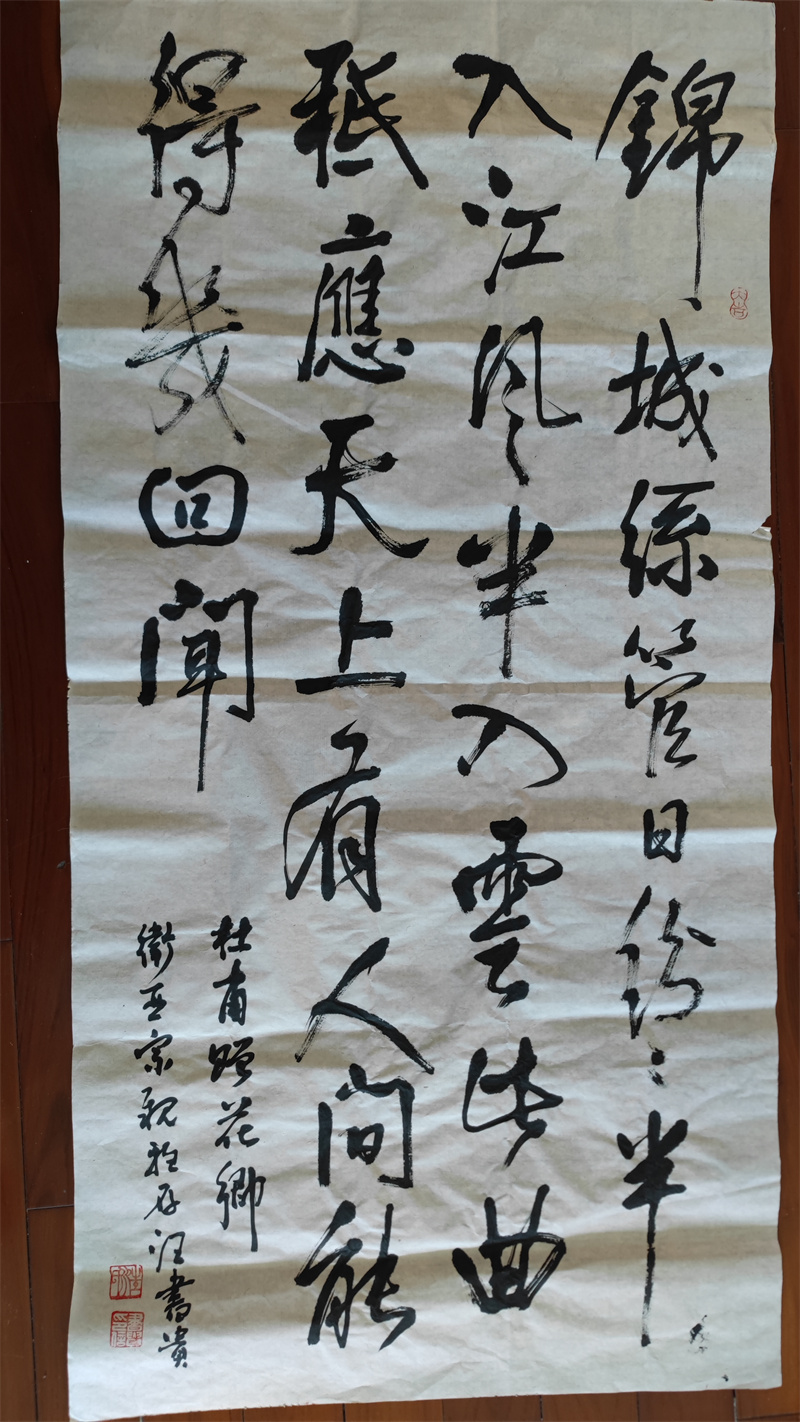 錦城絲管日紛〻半
入江風半入雲此曲
秪應天上有人間能
得幾回聞
杜甫贈花卿
衛宗親雅存汪書貴